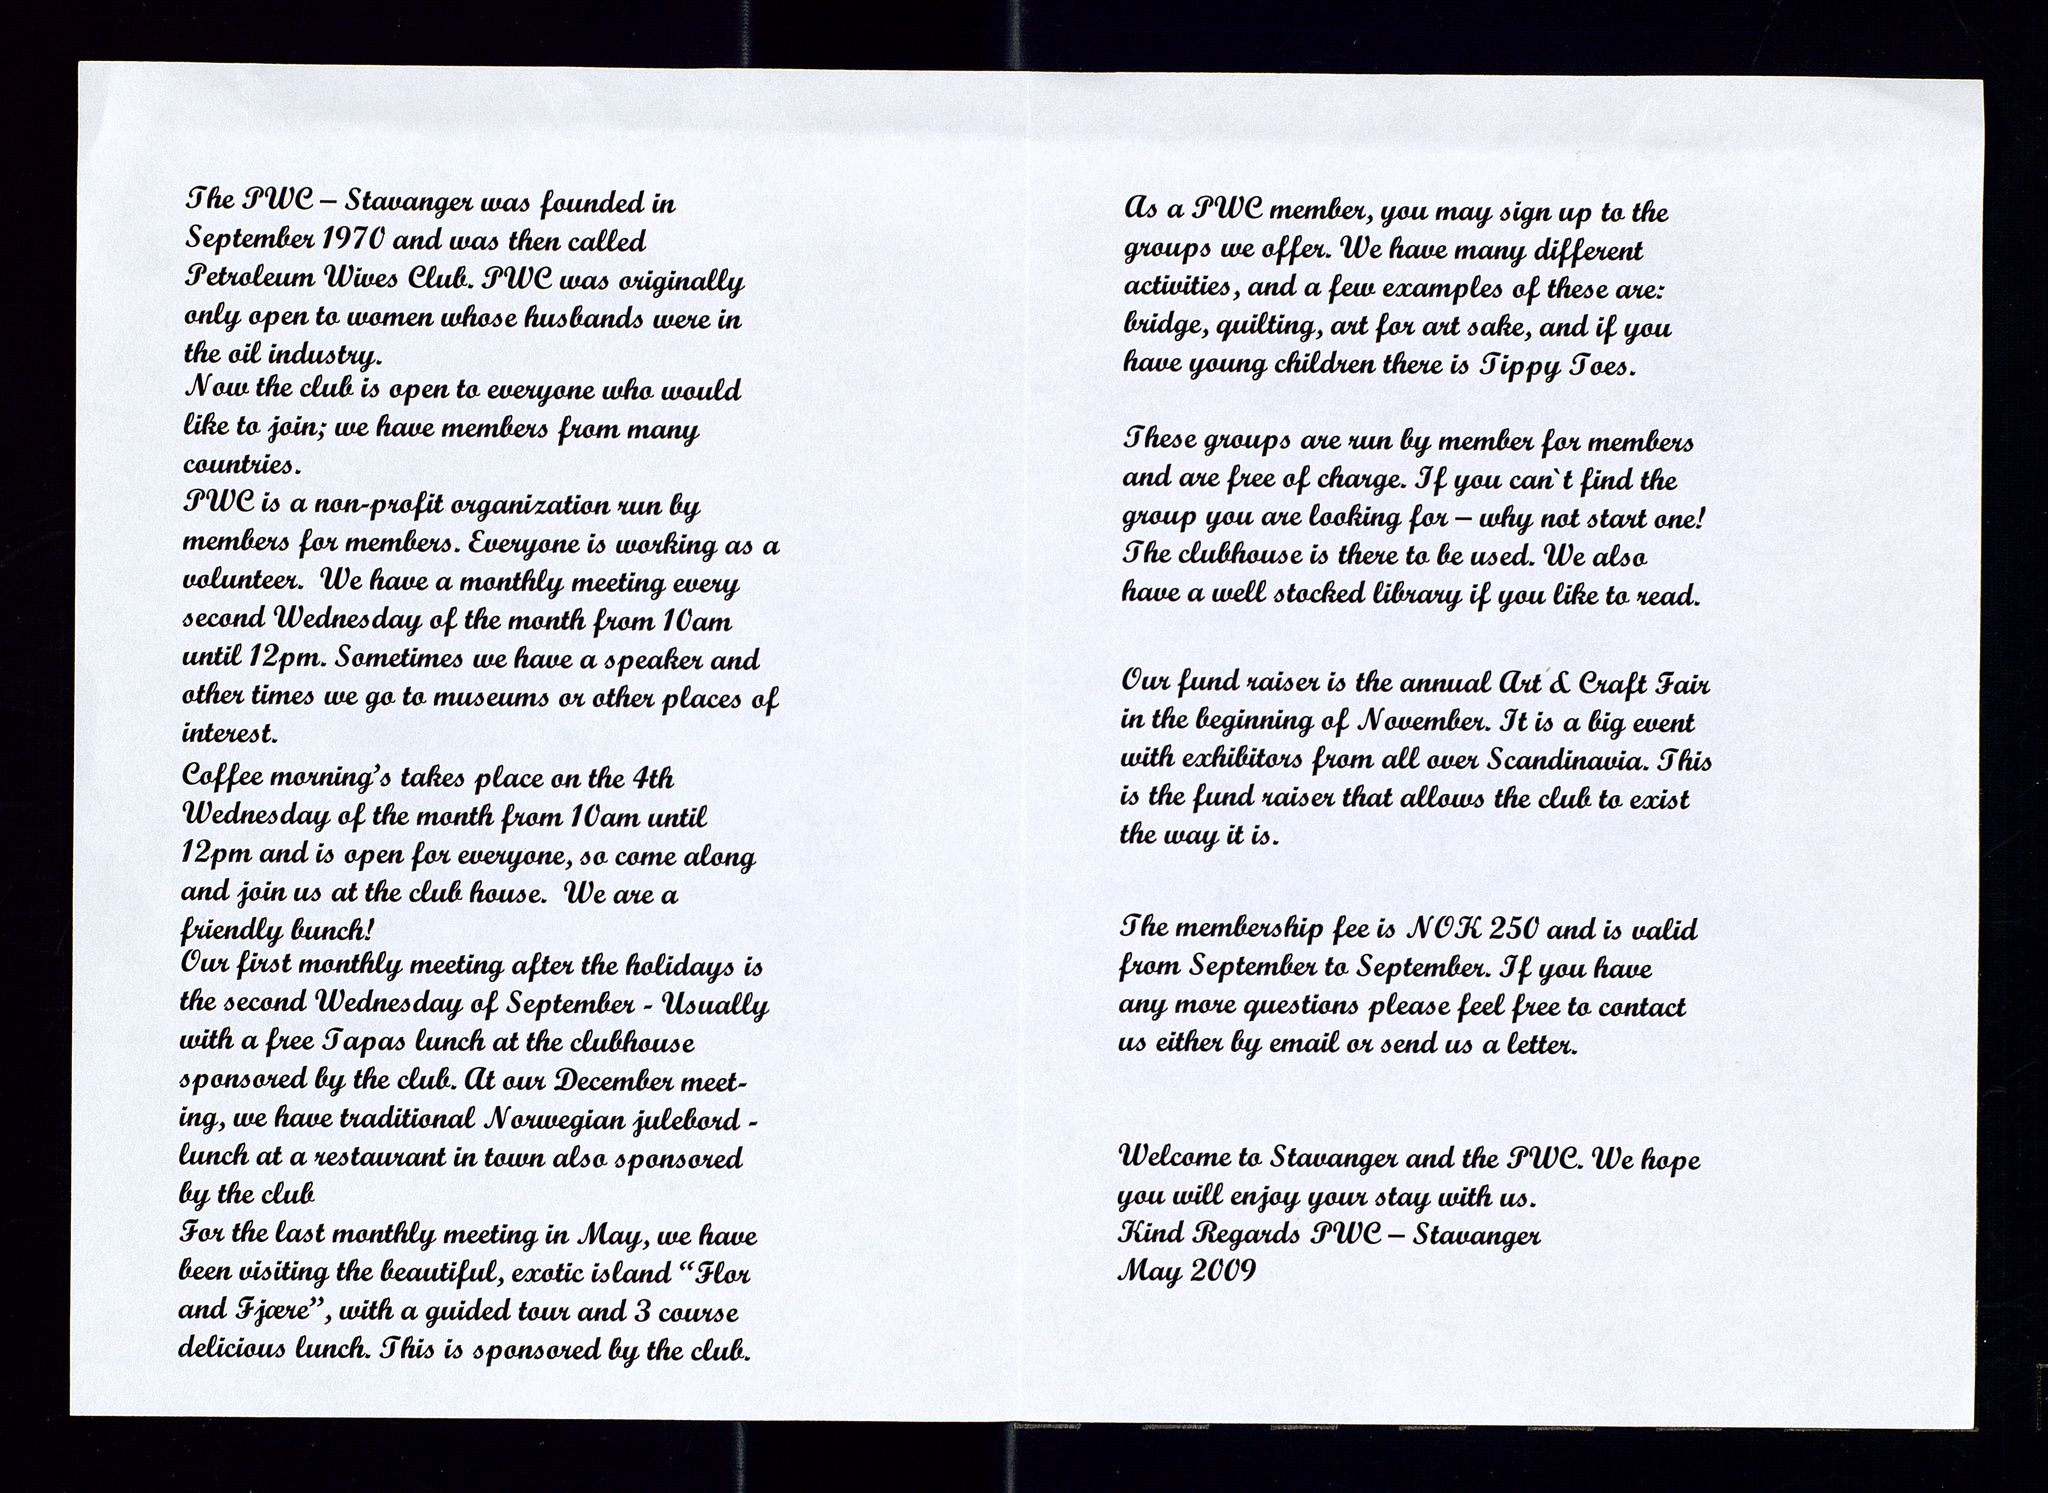 The PWC – Stavanger was founded in
September 1970 and was then called
Petroleum Wives Club. PWC was originally
only open to women whose husbands were in
the oil industry.
Now the club is open to everyone who would
like to join; we have members from many
countries.
PWC is a non-profit organization run by
members for members. Everyone is working as a
volunteer.  We have a monthly meeting every
second Wednesday of the month from 10am
until 12pm. Sometimes we have a speaker and
other times we go to museums or other places of
interest.
Coffee morning’s takes place on the 4th
Wednesday of the month from 10am until
12pm and is open for everyone, so come along
and join us at the club house.  We are a
friendly bunch!
Our first monthly meeting after the holidays is
the second Wednesday of September - Usually
with a free Tapas lunch at the clubhouse
sponsored by the club. At our December meet-
ing, we have traditional Norwegian julebord -
lunch at a restaurant in town also sponsored
by the club
For the last monthly meeting in May, we have
been visiting the beautiful, exotic island “Flor
and Fjære”, with a guided tour and 3 course
delicious lunch. This is sponsored by the club.
As a PWC member, you may sign up to the
groups we offer. We have many different
activities, and a few examples of these are:
bridge, quilting, art for art sake, and if you
have young children there is Tippy Toes.
These groups are run by member for members
and are free of charge. If you can`t find the
group you are looking for – why not start one!
The clubhouse is there to be used. We also
have a well stocked library if you like to read.
Our fund raiser is the annual Art & Craft Fair
in the beginning of November. It is a big event
with exhibitors from all over Scandinavia. This
is the fund raiser that allows the club to exist
the way it is.
The membership fee is NOK 250 and is valid
from September to September. If you have
any more questions please feel free to contact
us either by email or send us a letter.
Welcome to Stavanger and the PWC. We hope
you will enjoy your stay with us.
Kind Regards PWC – Stavanger
May 2009